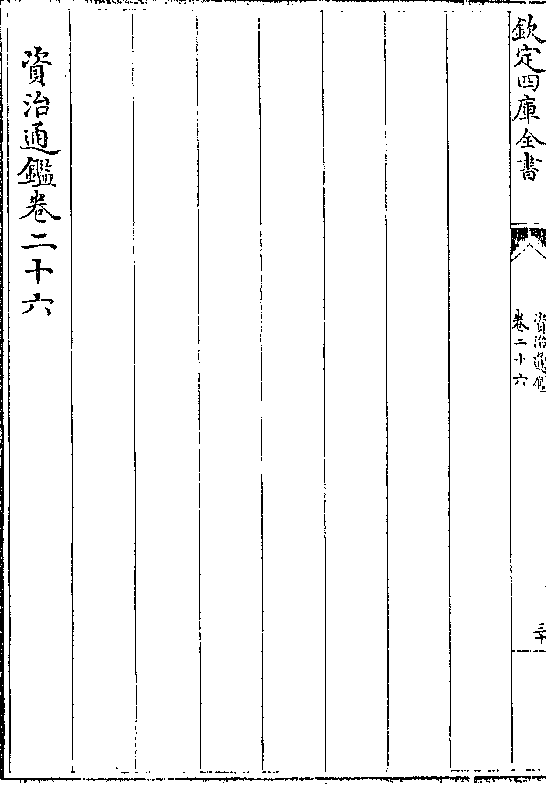 欽定四庫全書
資治通鑑
卷二十六
三十
資治通鑑卷二十六